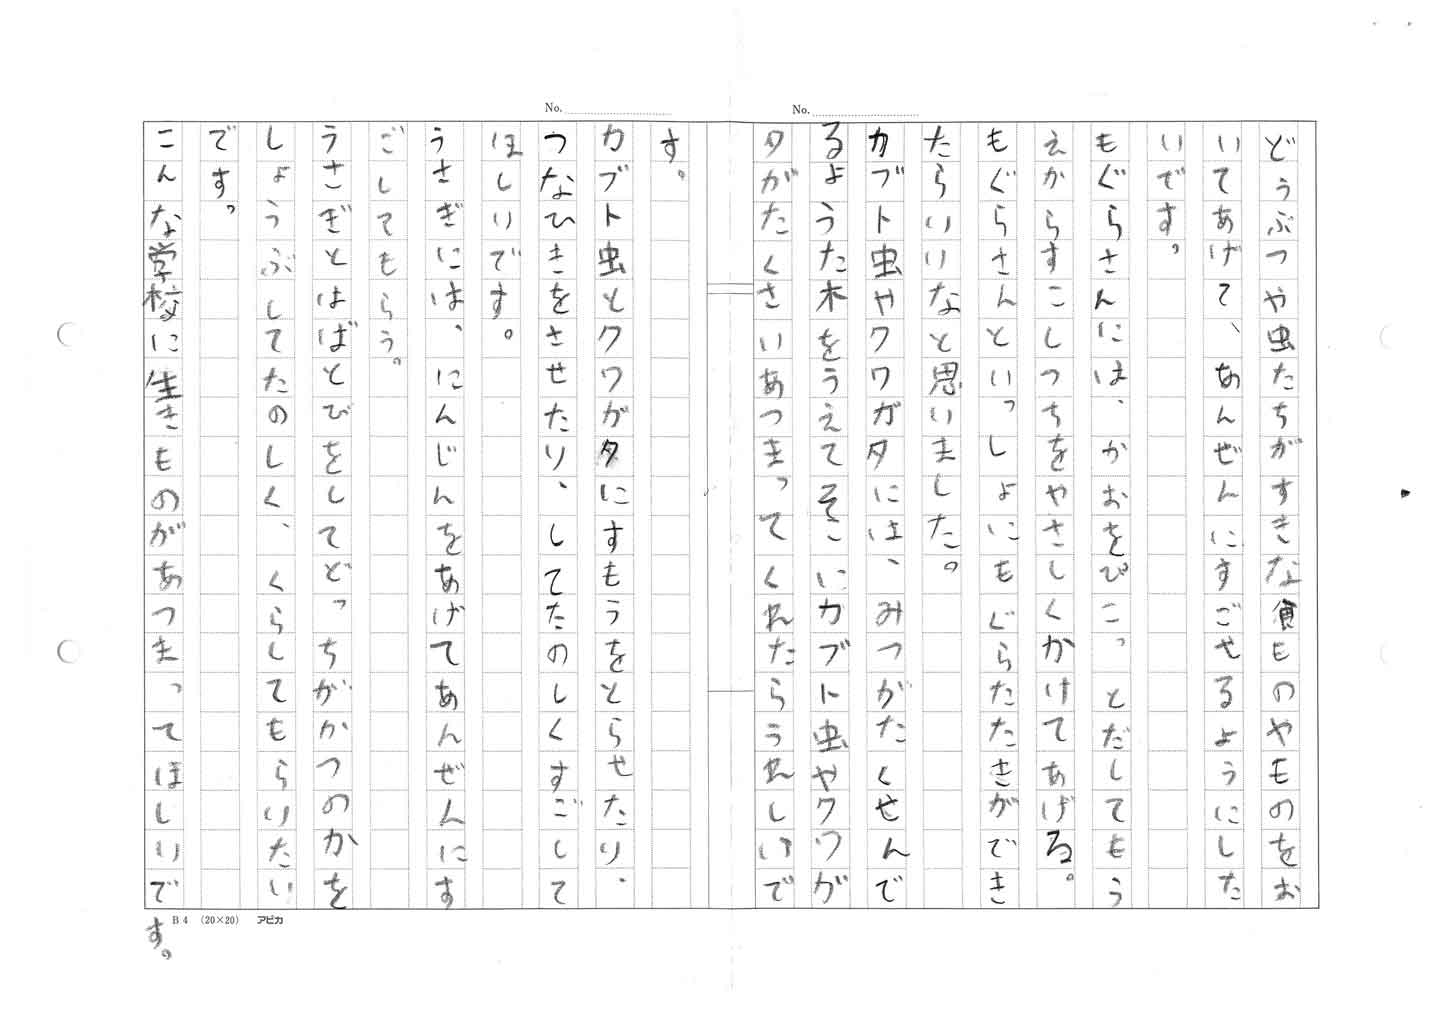 No.
No.
どうぶつや虫たちがすきな食ものやものをお
いてあげて、あんぜんにすごせるようにした
いです。
もぐらさんには、かおをぴこっとだしてもう
えからすこしつちをやさしくかけてあげる。
もぐらさんといっしょにもぐらたたきができ
たらいいなと思いました。
カブト虫やクワガタには、みつがたくせんで
るようた木をうえてそこにカブト虫やクワガ
タがたくさいあつまってくれたらうれしいで
す。
カブト虫とクワガタにすもうをとらせたり、
つなひきをさせたり、してたのしくすごして
ほしいです。
うさぎには、にんじんをあげてあんぜんにす
ごしてもらう。
うさぎとはばとびをしてどっちがかつのかを
しょうぶしてたのしく、くらしてもらいたい
です。
こんな学校に生きものがあつまってほしいで
す。
B4 (20×20) アピカ